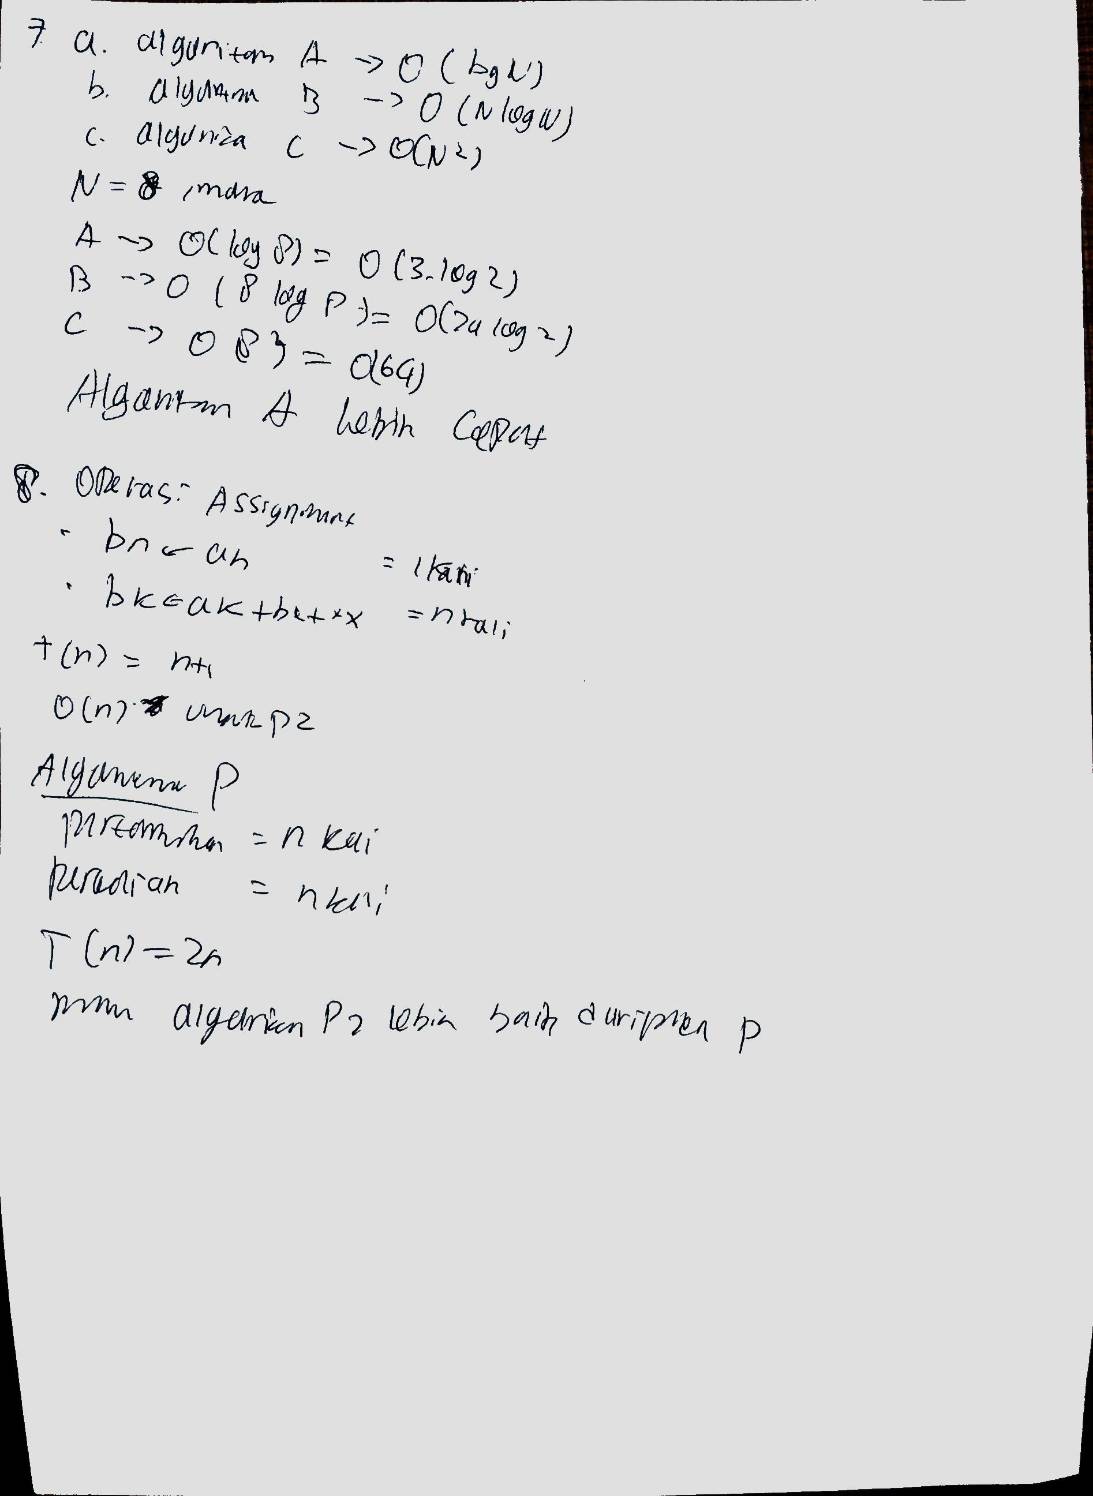 7. a. algoritam A -> O (log N)
b. algoritma B -> O (N log N)
c. algoritma C -> O(N2)
N = 8, maka
A -> O(log 8) = O (3.log 2)
B -> O (8 log 8) = O(24 log 2)
C -> O 8 = O(64)
Algoritm A lebih cepat
8. Operasi Assignment
· bn ← an = 1 kali
· bk ← ak + bk + * x = n kali
t(n) = n+1
O(n) untuk p2
Algoritma P
= n kali
perkalian = n kali
T (n) = 2n
algoritma P2 lebih baik daripada p